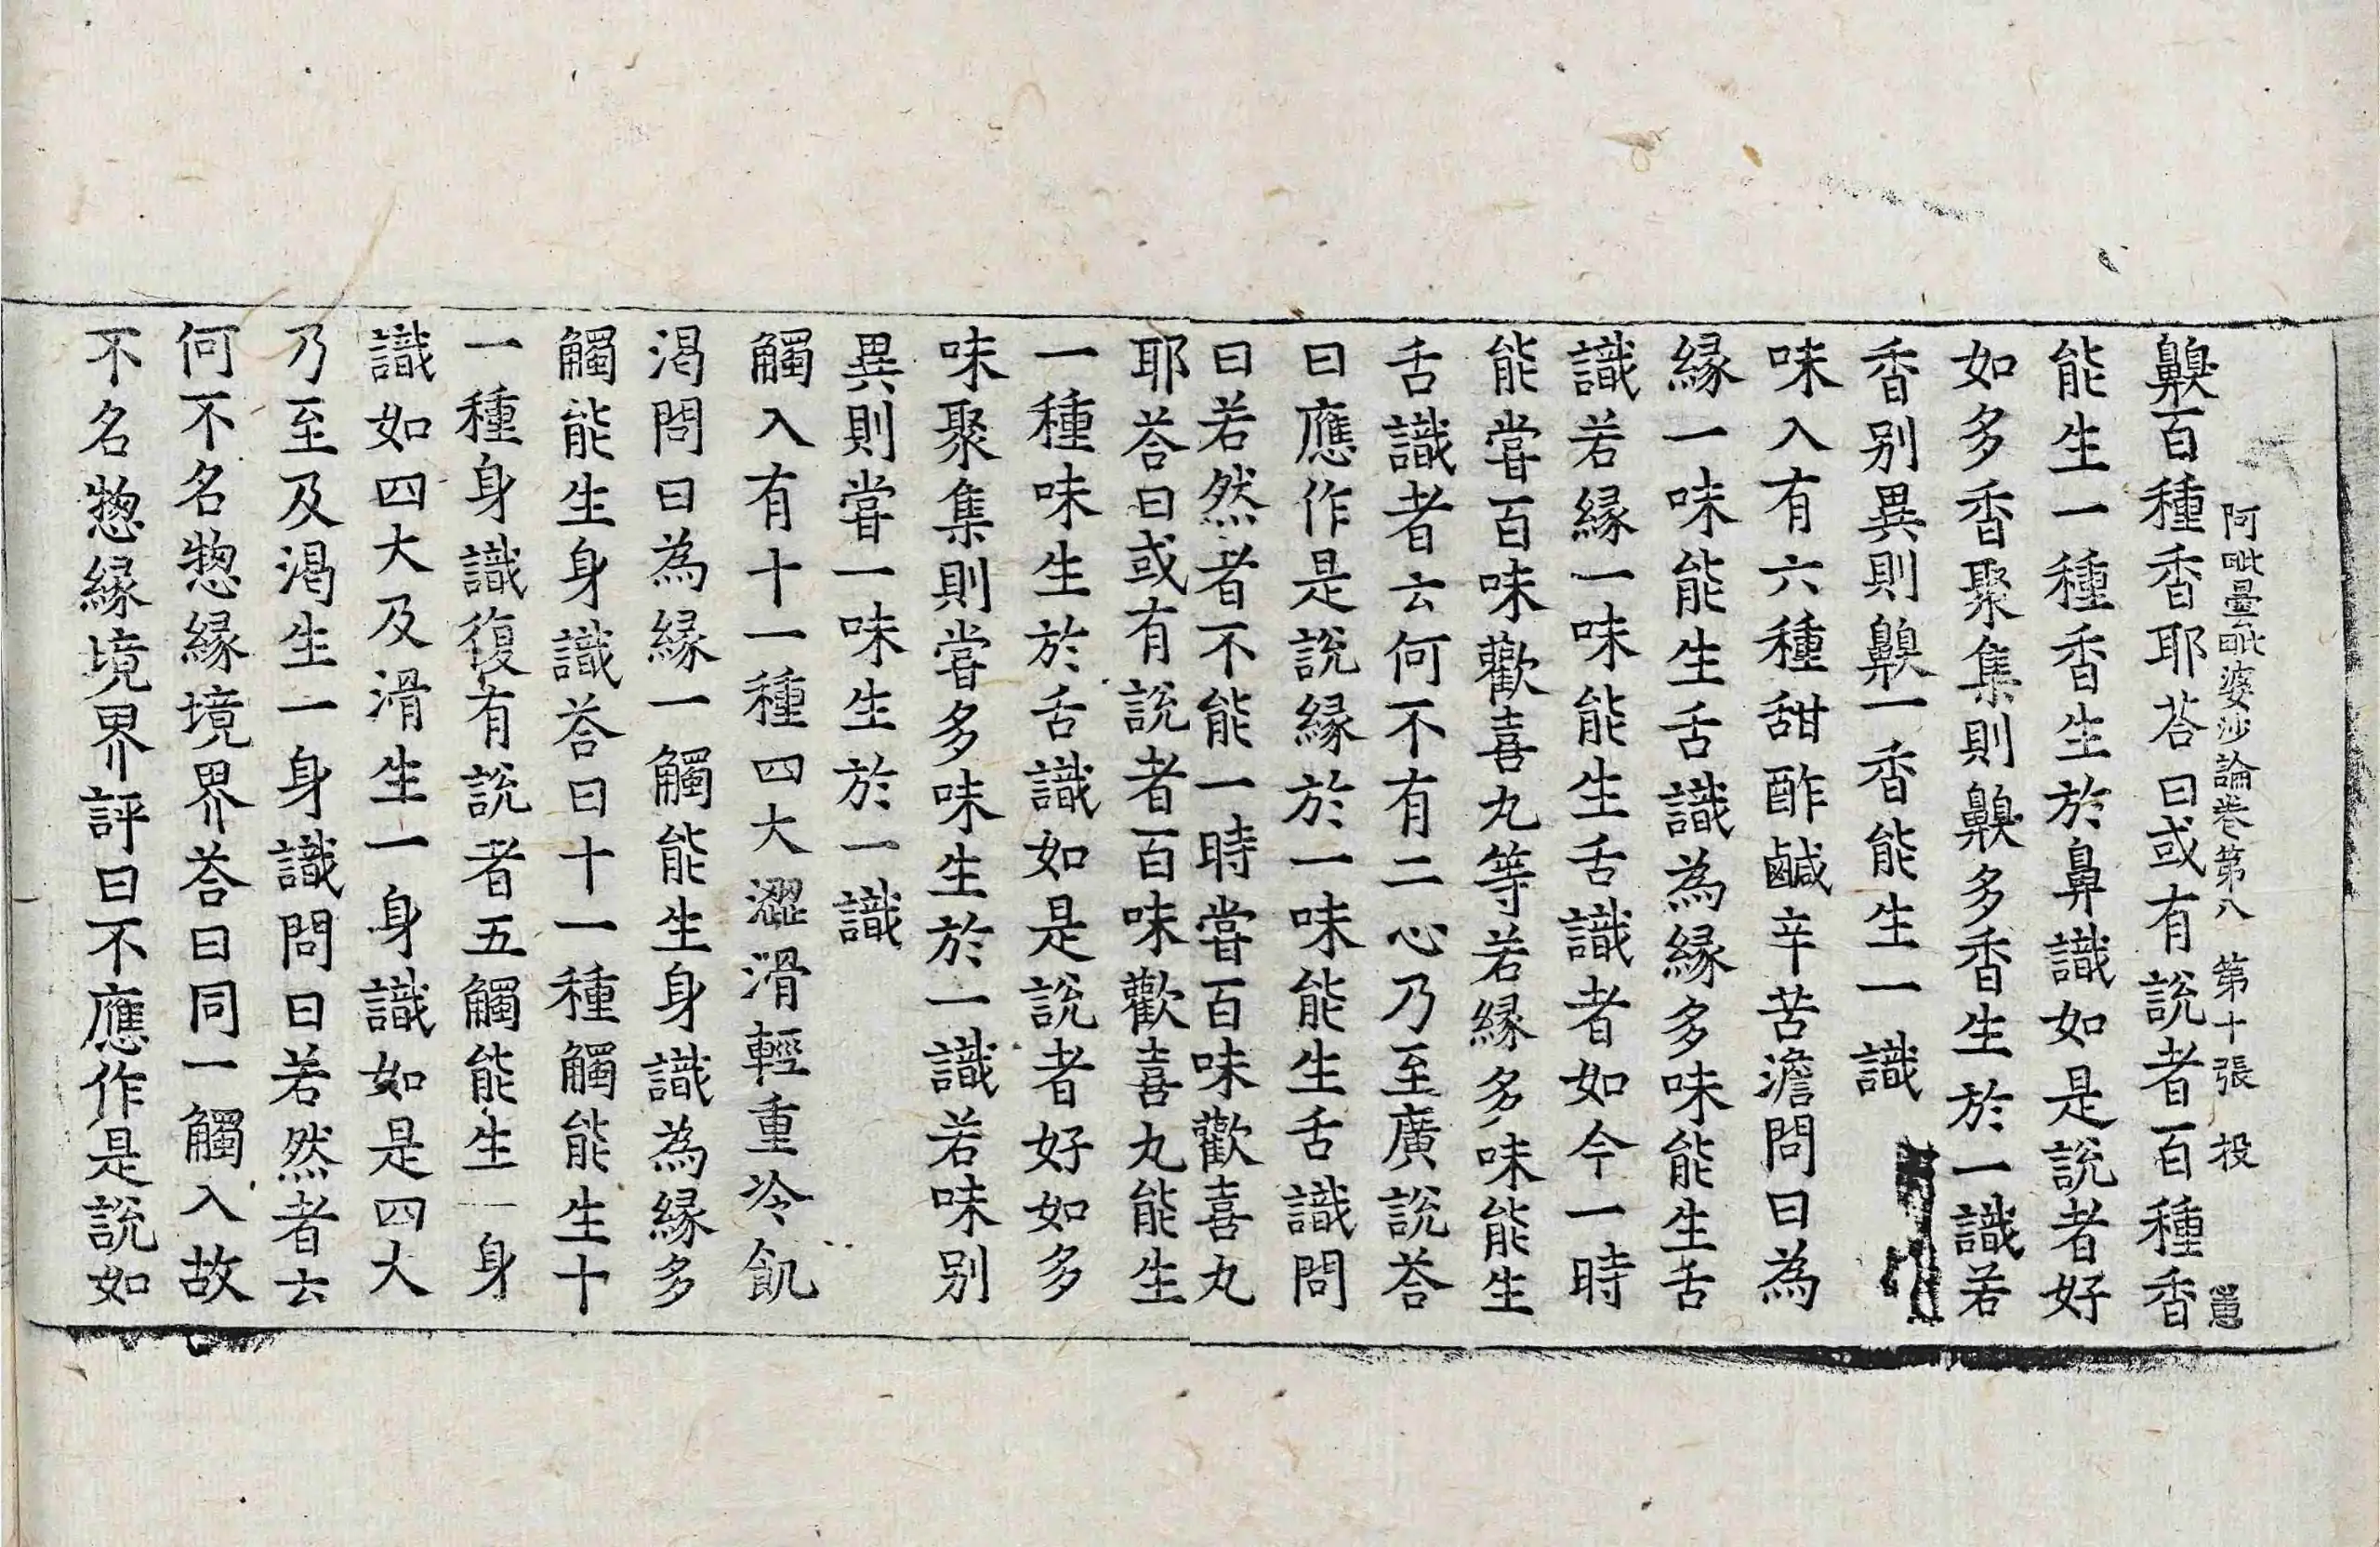 齅百種香耶荅曰或有說者百種香
阿毗曇毗婆沙論卷第八 第十張 投
能生一種香生於鼻識如是說者好
如多香聚集則齅多香生於一識若
香别異則齅一香能生一識
味入有六種甜酢鹹辛苦澹問曰為
緣一味能生舌識為緣多味能生舌
識若緣一味能生舌識者如今一時
能嘗百味歡喜丸等若緣多味能生
舌識者云何不有二心乃至廣說荅
曰應作是說緣於一味能生舌識問
曰若然者不能一時嘗百味歡喜丸
耶荅曰或有說者百味歡喜丸能生
一種味生於舌識如是說者好如多
味聚集則嘗多味生於一識若味别
異則嘗一味生於一識
觸入有十一種四大澀滑輕重冷飢
渴問曰為緣一觸能生身識為緣多
觸能生身識荅曰十一種觸能生十
一種身識復有說者五觸能生一身
識如四大及滑生一身識如是四大
乃至及渴生一身識問曰若然者云
何不名惣緣境界荅曰同一觸入故
不名惣緣境界評曰不應作是說如